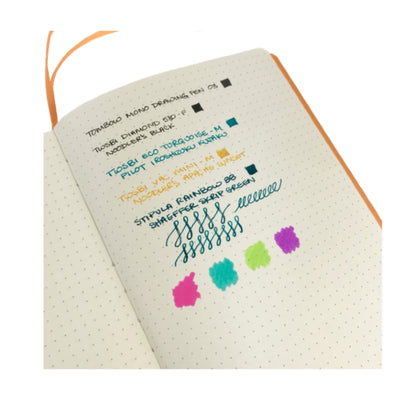 TOMBOW MONO DRAWING PEN 03
TWSBI DIAMOND 530-F
NOODLER'S BLACK
TWSBI ECO TURQUOISE-M
PILOT IROSHIZUKU KUJAKU
TWSBI VAC MINI-M
NOODLER'S APACHE SUNSET
STIPULA RAINBOW BB
SHAEFFER SKRIP GREEN